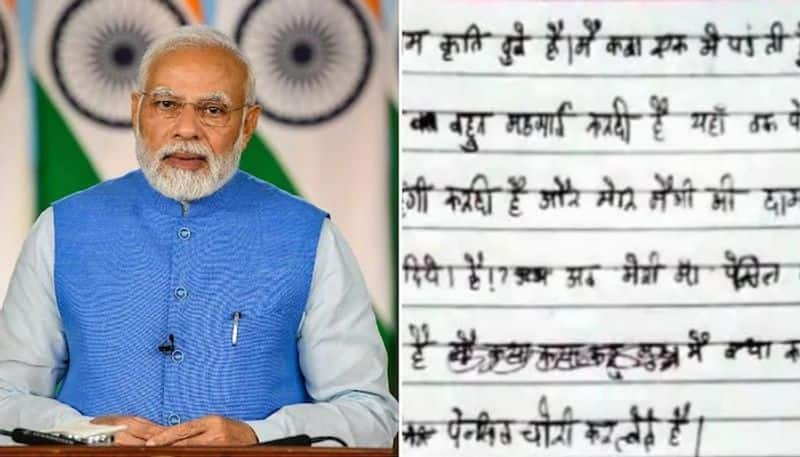 म कृति दुबे है। मैं कक्षा एक मे पढ़ती
बहुत महगाई करदी है यहाँ तक पे
गी करदी है और मेरी मैगी की दाम
दिये। है!? अब मेरी मा पेंसिल
है में क्या क
पेन्सिल चोरी करलेते है।